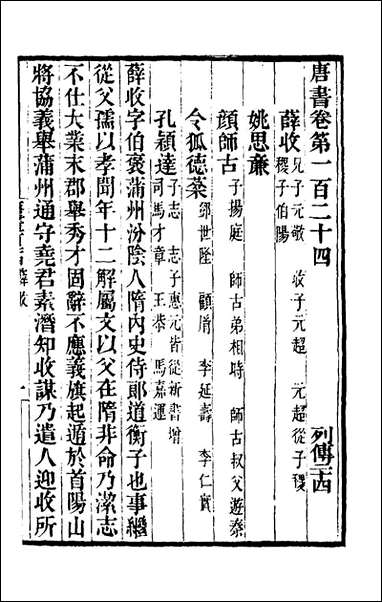 唐書卷第一百二十四
列傳二十四
薛收 兄子元敬 收子元超 元超從子稷
稷子伯陽
姚思廉
顏師古 子揚庭 師古弟相時 師古叔父遊秦
令狐德棻 鄧世隆 顧胤 李延壽 李仁實
孔穎達 子志 志子惠元皆從新書增
司馬才章 王恭 馬嘉運
薛收字伯褒蒲州汾陰人隋內史侍郎道衡子也事繼
從父孺以孝聞年十二解屬文以父在隋非命乃潔志
不仕大業末郡舉秀才固辭不應義旗起遁於首陽山
將協義舉蒲州通守堯君素潛知收謀乃遣人迎收所